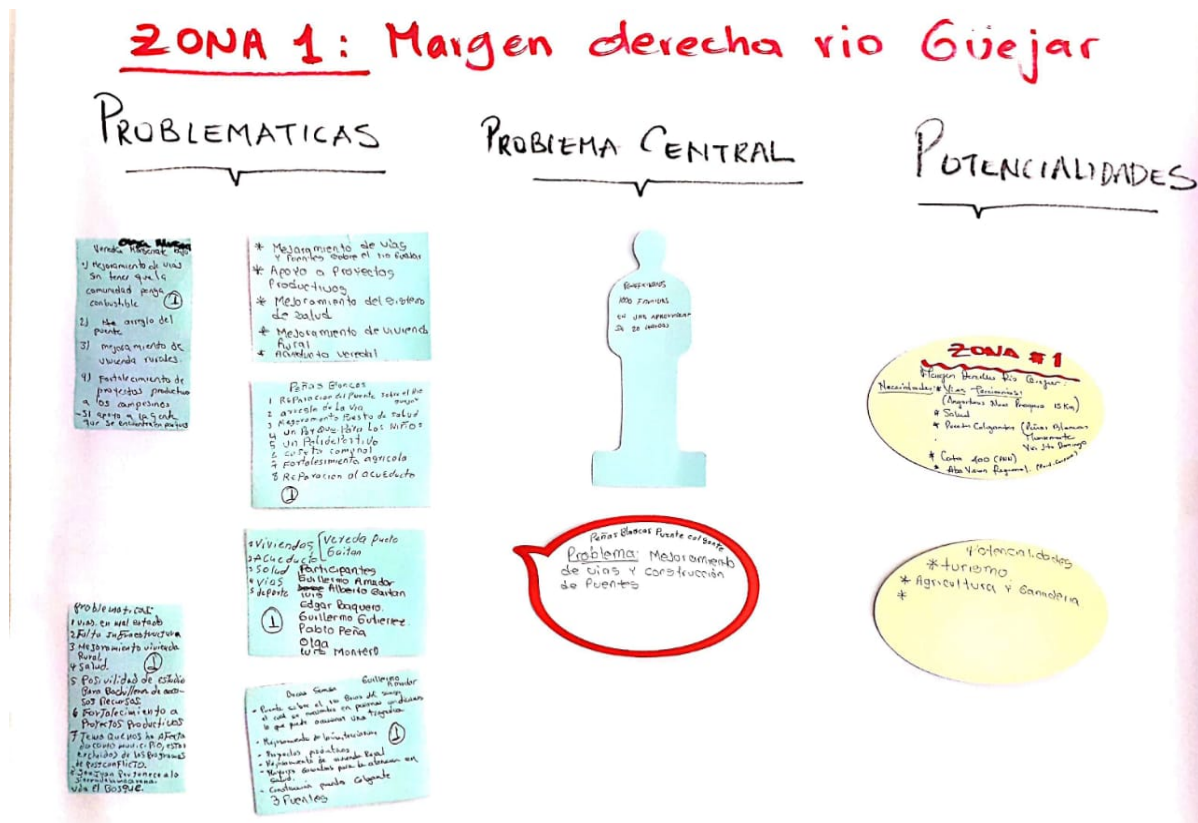 ZONA 1: Margen derecha rio Güejar
PROBLEMATICAS
PROBLEMA CENTRAL
POTENCIALIDADES
Vereda
1) Mejoramiento de vias
sin tener que la
comunidad ponga
combustible
1
2) arreglo del
puente
3) mejoramiento de
vivienda rurales.
4) Fortalecimiento de
proyectos productivo
a los campesinos
* Mejoramiento de vias
y Puentes sobre el rio Guejar
* Apoyo a Proyectos
Productivos
* Mejoramiento del sistema
de salud
* Mejoramiento de vivienda
Rural
* Acueducto veredal
Peñas Blancas
1 Reparacion del Puente sobre el Rio
2 arreglo de la via
3 Mejoramiento Puesto de salud
4 un Parque Para los niños
5 un Polideportivo
6 caseta comunal
7 Fortalesimiento agricola
8 Reparacion al acueducto
1
Viviendas Vereda
Acueducto Gaitan
3 Salud Participantes
4 vias Guillermo Amador
5 deporte luis Alberto Gaitan
Edgar Baquero.
1 Guillermo Gutierrez
Pablo Peña
Olga
Luis Montero
Problematicas
1 vias. en mal estado
2 Falta Infraestructura
3 Mejoramiento vivienda
Rural
4 Salud.
1
5 Posivilidad de estudio
Para Bachilleres de
sos Recursos
6 Fortalecimiento a
Proyectos Productivos
7 Tema Que nos ha Afecta
do como municipio, estar
excluidos de los Programas
de Postconflicto.
via el Bosque.
Guillermo
Amador
Puente sobre el rio
el cual se encuentra en pesimas condiciones
lo que puede ocasionar una tragedia
- Mejoramiento de
1
- Proyectos productivos
- Mejoramiento de vivienda Rural
para la atencion en
salud.
- Construcción puente Colgante
3 Puentes
Beneficiarios
1000 Familias
en una
de 20 veredas
Peñas Blancas Puente colgante
Problema: Mejoramiento
de vias y construcción
de Puentes
ZONA #1
Margen Derecha Rio Guejar.
Necesidades: * Vias Terciarias:
(Angosturas Nuevo Progreso 15 Km)
* Salud
* Puentes Colgantes (Peñas Blancas
Sto Domingo
* Cota 400
Potencialidades
* turismo
* Agricultura y Ganaderia
*